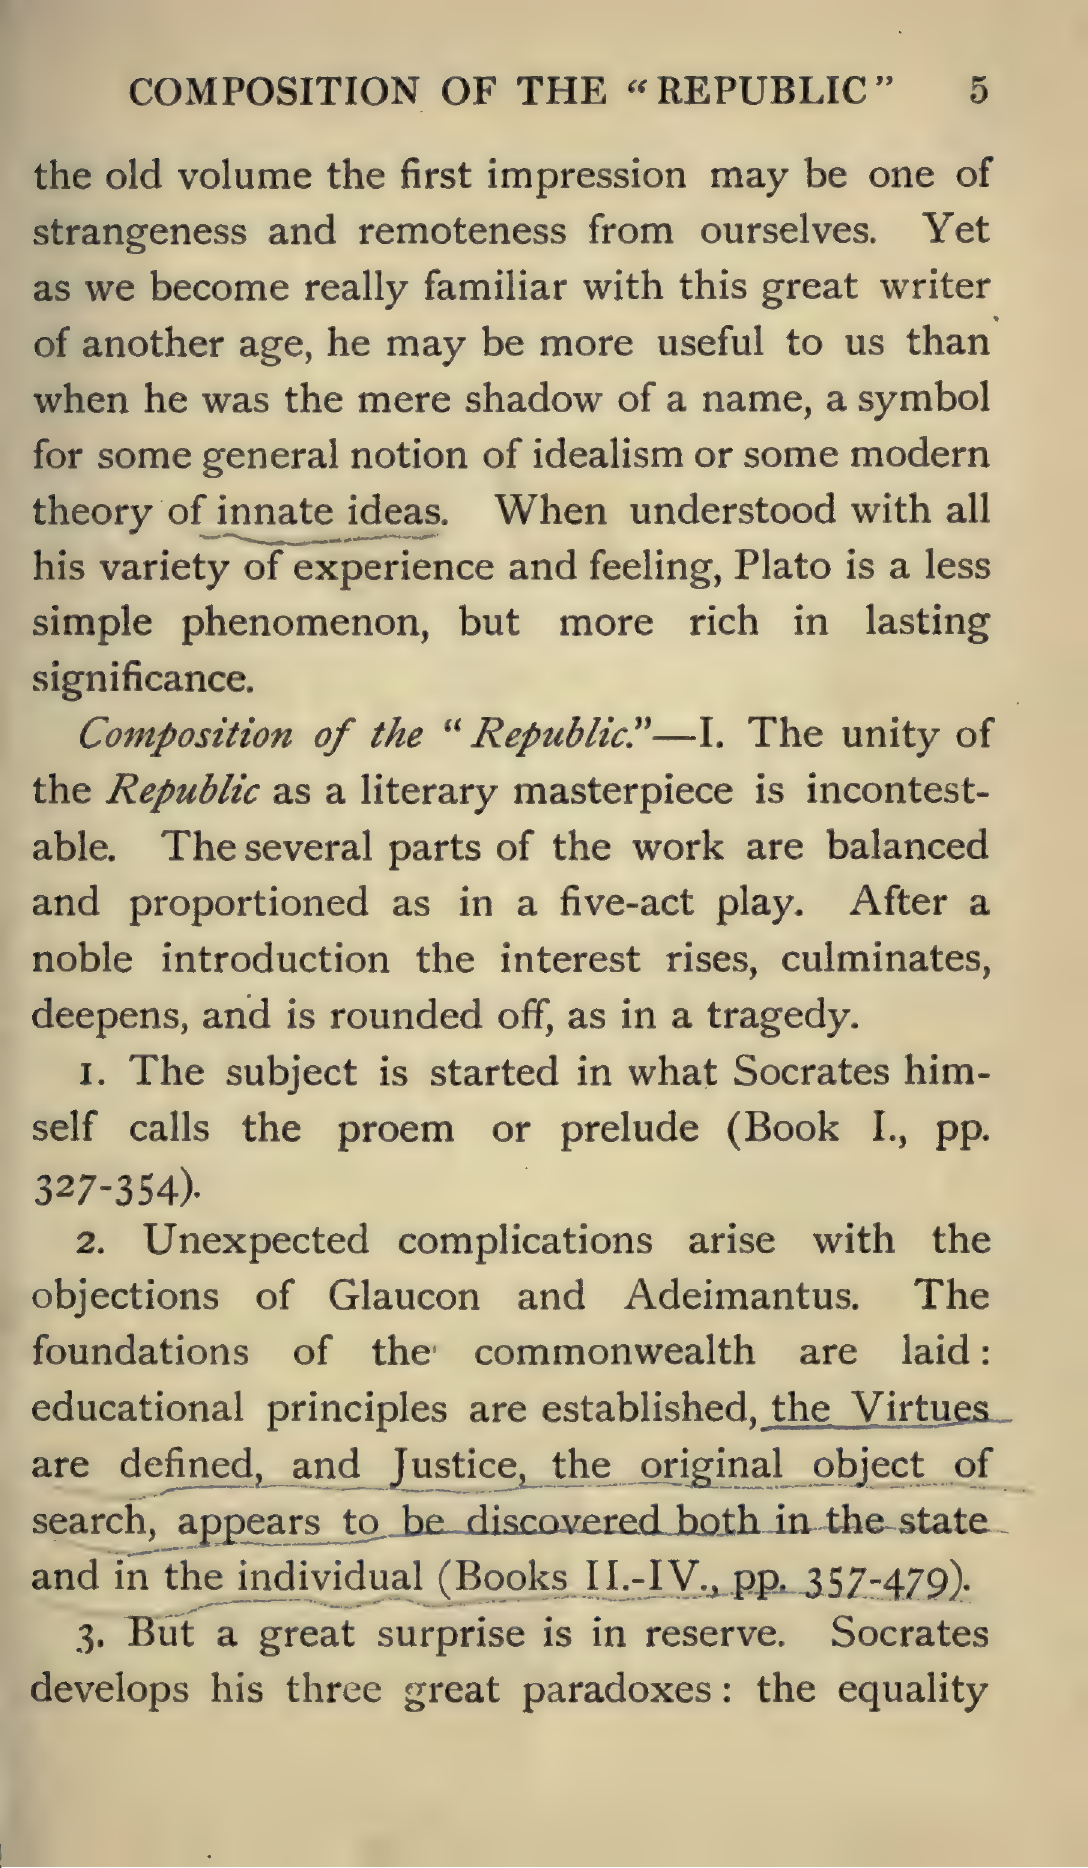 COMPOSITION OF THE “REPUBLIC” 5
the old volume the first impression may be one of
strangeness and remoteness from ourselves. Yet
as we become really familiar with this great writer
of another age, he may be more useful to us than
when he was the mere shadow of a name, a symbol
for some general notion of idealism or some modern
theory of innate ideas. When understood with all
his variety of experience and feeling, Plato is a less
simple phenomenon, but more rich in lasting
significance.
Composition of the “Republic.”—I. The unity of
the Republic as a literary masterpiece is incontest-
able. The several parts of the work are balanced
and proportioned as in a five-act play. After a
noble introduction the interest rises, culminates,
deepens, and is rounded off, as in a tragedy.
1. The subject is started in what Socrates him-
self calls the proem or prelude (Book I., pp.
327-354).
2. Unexpected complications arise with the
objections of Glaucon and Adeimantus. The
foundations of the commonwealth are laid :
educational principles are established, the Virtues
are defined, and Justice, the original object of
search, appears to be discovered both in the state
and in the individual (Books II.-IV., pp. 357-479).
3. But a great surprise is in reserve. Socrates
develops his three great paradoxes : the equality